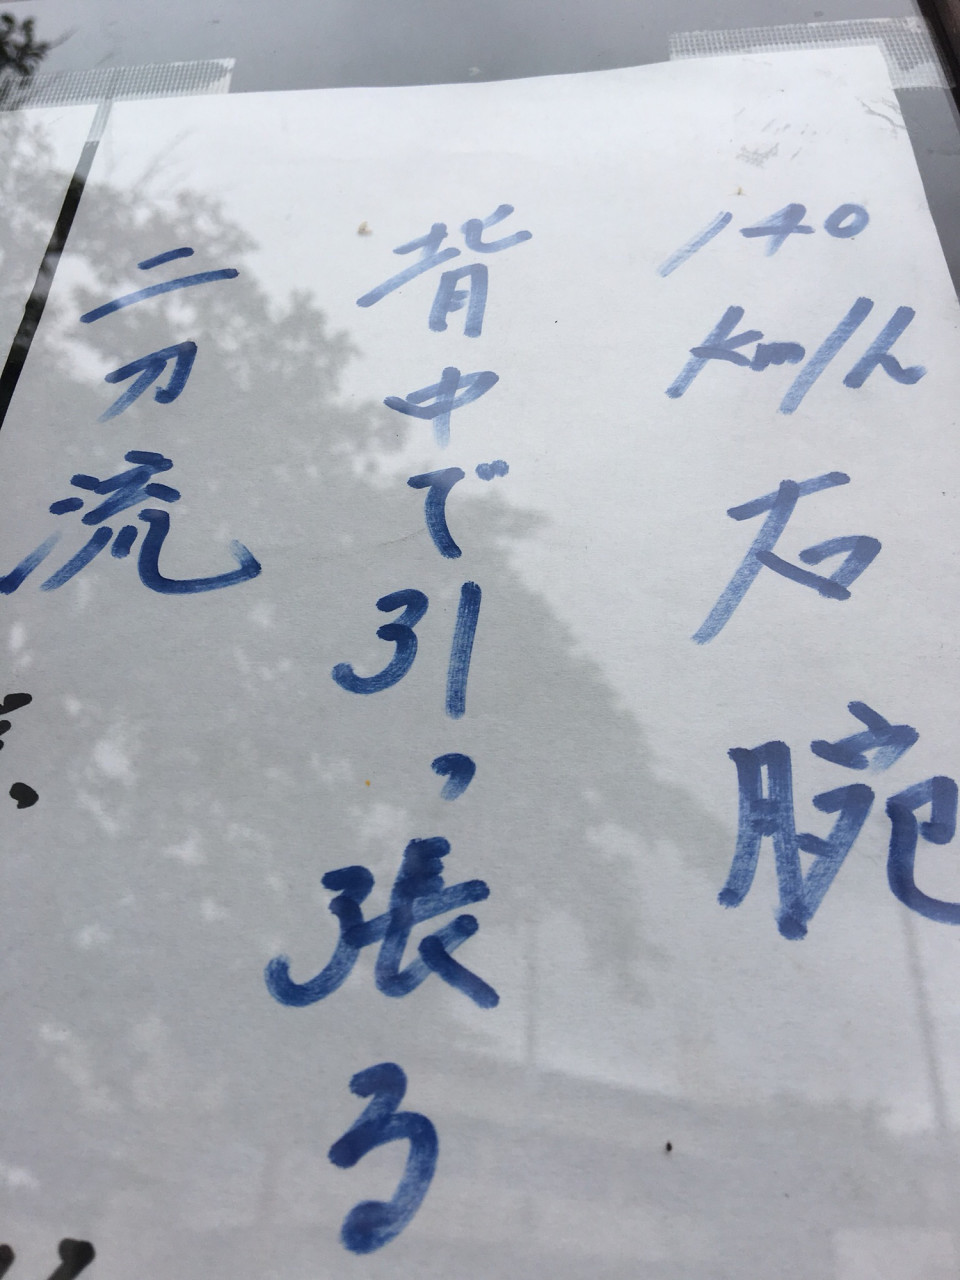 140km/h 右腕
背中で引っ張る
二刀流